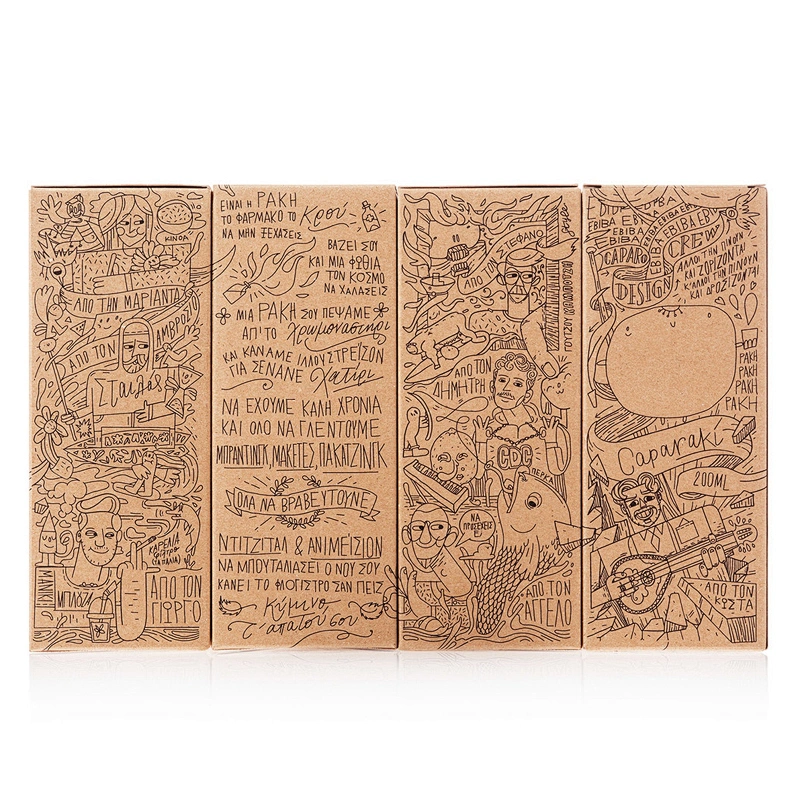 ΚΙΝΟΑ
ΑΠΟ ΤΗΝ ΜΑΡΙΑΝΤΑ
ΑΠΟ ΤΟΝ
ΑΜΒΡΟΣΙΟ
Σταλόβ
ΚΑΡΕΛΙΑ
ΦΙΛΤΡΟ
(ΑΠΑΛΙΑ)
ΜΑΝΙΚΗ
ΜΠΛΟΥΖΑ
ΑΠΟ ΤΟΝ
ΓΙΩΡΓΟ
ΕΙΝΑΙ Η ΡΑΚΗ
ΤΟ ΦΑΡΜΑΚΟ ΤΟ Κρού
ΝΑ ΜΗΝ ΞΕΧΑΣΕΙΣ
ΒΑΖΕΙ ΣΟΥ
ΚΑΙ ΜΙΑ ΦΩΘΙΑ
ΤΟΝ ΚΟΣΜΟ
ΝΑ ΧΑΛΑΣΕΙΣ
ΜΙΑ ΡΑΚΗ ΣΟΥ ΠΕΨΑΜΕ
ΑΠ'ΤΟ Χρωμοναστήρι
ΚΑΙ ΚΑΝΑΜΕ ΙΛΛΟΥΣΤΡΕΪΣΟΝ
ΓΙΑ ΣΕΝΑΝΕ Χατίρι
ΝΑ ΕΧΟΥΜΕ ΚΑΛΗ ΧΡΟΝΙΑ
ΚΑΙ ΟΛΟ ΝΑ ΓΛΕΝΤΟΥΜΕ
ΜΠΡΑΝΤΙΝΓΚ, ΜΑΚΕΤΕΣ, ΠΑΚΑΤΖΙΝΓΚ
ΟΛΑ ΝΑ ΒΡΑΒΕΥΤΟΥΝΕ
ΝΤΙΤΖΙΤΑΛ & ΑΝΙΜΕΪΣΙΟΝ
ΝΑ ΜΠΟΥΤΑΛΙΑΣΕΙ Ο ΝΟΥΣ ΣΟΥ
ΚΑΝΕΙ ΤΟ ΦΛΟΓΙΣΤΡΟ ΣΑΝ ΠΕΙΣ
Κύμινο
Τ' απαυτού σου
ΑΠΟ ΤΟΝ ΣΤΕΦΑΝΟ
ΑΠΟ ΤΟΝ
ΔΗΜΗΤΡΗ
GDC
ΠΕΡΚΑ
ΝΑ
ΠΡΟΣΕΧΕΙΣ
Ε;
ΑΠΟ ΤΟΝ
ΑΓΓΕΛΟ
ΕΒΙΒΑ ΕΒΙΒΑ ΕΒΙΒΑ
CAPARO
DESIGN
CREW
ΑΛΛΟΙ ΤΗΝ ΠΙΝΟΥΝ
ΚΑΙ ΖΟΡΙΖΟΝΤΑΙ
Κ'ΑΛΛΟΙ ΤΗΝ ΠΙΝΟΥΝ
ΚΑΙ ΔΡΟΣΙΖΟΝΤΑΙ
ΡΑΚΗ
ΡΑΚΗ
ΡΑΚΗ
ΡΑΚΗ
Caparaki
200ML
ΑΠΟ ΤΟΝ
ΚΩΣΤΑ